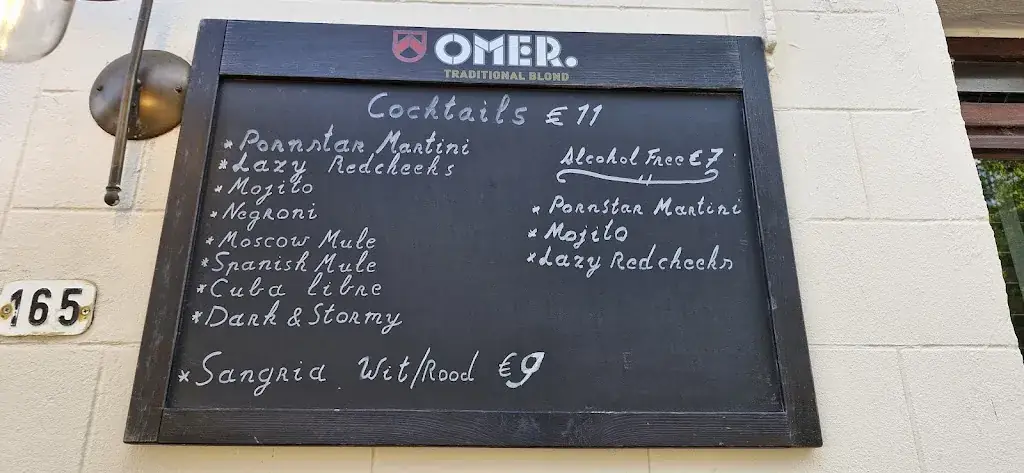 OMER.
TRADITIONAL BLOND
Cocktails € 11
* Pornstar Martini
* Lazy Redcheeks
* Mojito
* Negroni
* Moscow Mule
* Spanish Mule
* Cuba libre
* Dark & Stormy
* Sangria Wit/Rood €9
Alcohol Free €7
* Pornstar Martini
* Mojito
* Lazy Redcheeks
165